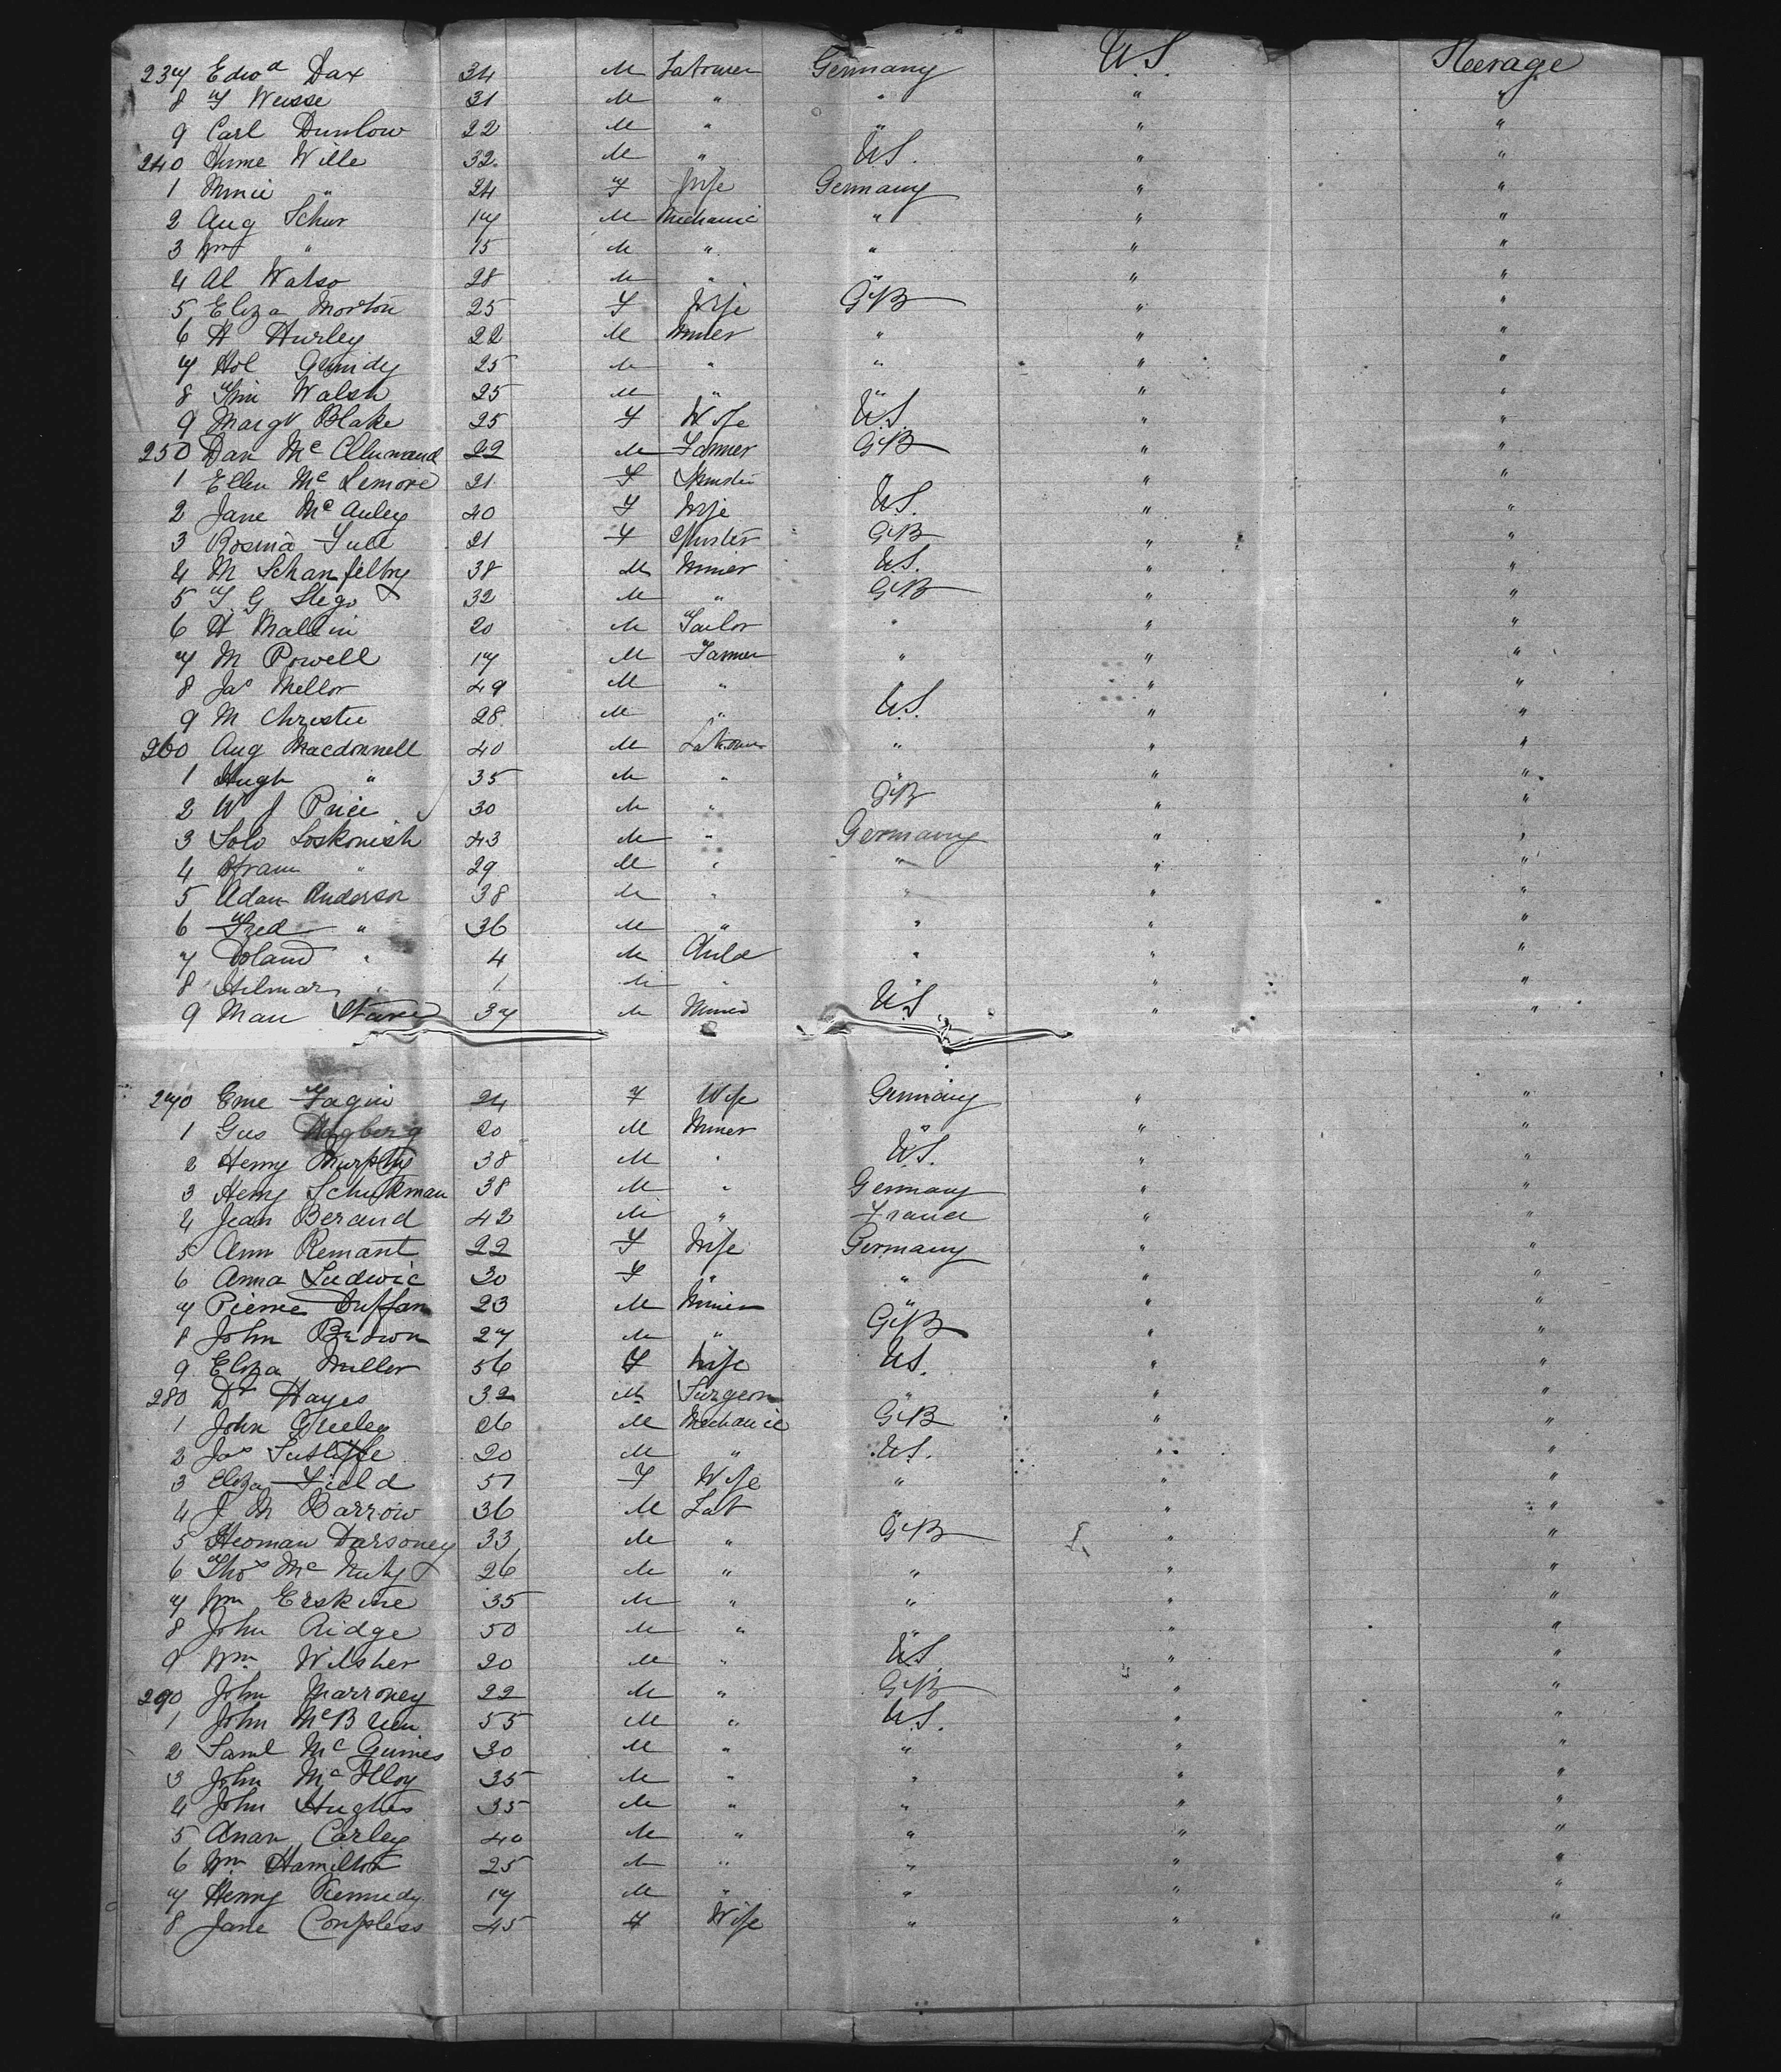 237 Edwd Dax 34 M Labourer Germany U.S. Steerage
8 F Weisse 31 M " " " "
9 Carl Dunlow 22 M " " " "
240 Wille 32 M " U.S. " "
1 Minie " 24 F Wife Germany " "
2 Aug Schur 17 M Mechanic " " "
3 Wm " 15 M " " " "
4 Al Watso 28 M " " " "
5 Eliza Morton 25 F Wife GB " "
6 H Hurley 22 M Miner " " "
7 Hol Grundy 25 M " " " "
8 Walsh 25 M " " " "
9 Margt Blake 25 F Wife U.S. " "
250 Dan 22 M Farmer GB " "
1 Ellen Mc Lemore 21 F " "
2 Jane Mc Auley 40 F Wife U.S. " "
3 Rosina 21 F GB " "
4 M 38 M Miner U.S. " "
5 T. G Stego 32 M " GB " "
6 H Mallin 20 M Tailor " " "
7 M Powell 17 M Farmer " " "
8 Jas Mellor 49 M " " " "
9 M Christie 28 M " U.S. " "
260 Aug Macdonnell 40 M Labourer " " "
1 Hugh " 35 M " " " "
2 W J Price 30 M " GB " "
3 Solo Loskonish 43 M " Germany " "
4 " 29 M " " " "
5 Adam Anderson 38 M " " " "
6 Fred " 36 M " " " "
7 " 4 M Child " " "
8 Hilmar " 1 M " " " "
9 37 M Miner U.S " "
270 Eme Fagin 24 F Wife Germany " "
1 Gus 20 M Miner " " "
2 Henry Murphy 38 M " U.S. " "
3 Henry Schukman 38 M " Germany " "
4 Jean Beraud 42 M " France " "
5 Ann Remant 22 F Wife Germany " "
6 Anna Ludwic 30 F " " " "
7 Pierre Duffan 23 M Miner " " "
8 John Brown 27 M " GB " "
9 Eliza Miller 56 F Wife U.S. " "
280 Dr Hayes 32 M Surgeon " " "
1 John Greeley 26 M Mechanic GB " "
2 Jas Sutliffe 20 M " U.S. " "
3 Eliza Field 51 F Wife " " "
4 J M Barrow 36 M Lab " " "
5 Herman Darsoney 33 M " GB " "
6 Thos Mc Nuty 26 M " " " "
7 Wm Erskine 35 M " " " "
8 John Ridge 50 M " " " "
9 Wm Wilsher 20 M " U.S. " "
290 John Marroney 22 M " GB " "
1 John McBrien 55 M " U.S. " "
2 Saml Mc Guines 30 M " " " "
3 John Mc Illoy 35 M " " " "
4 John Hughes 35 M " " " "
5 Carley 40 M " " " "
6 Wm Hamilton 25 M " " " "
7 Henry Kennedy 17 M " " " "
8 Jane 45 F Wife " " "